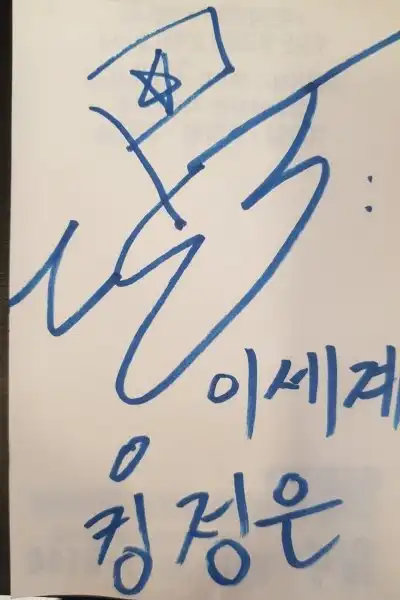 이세계
킹정은